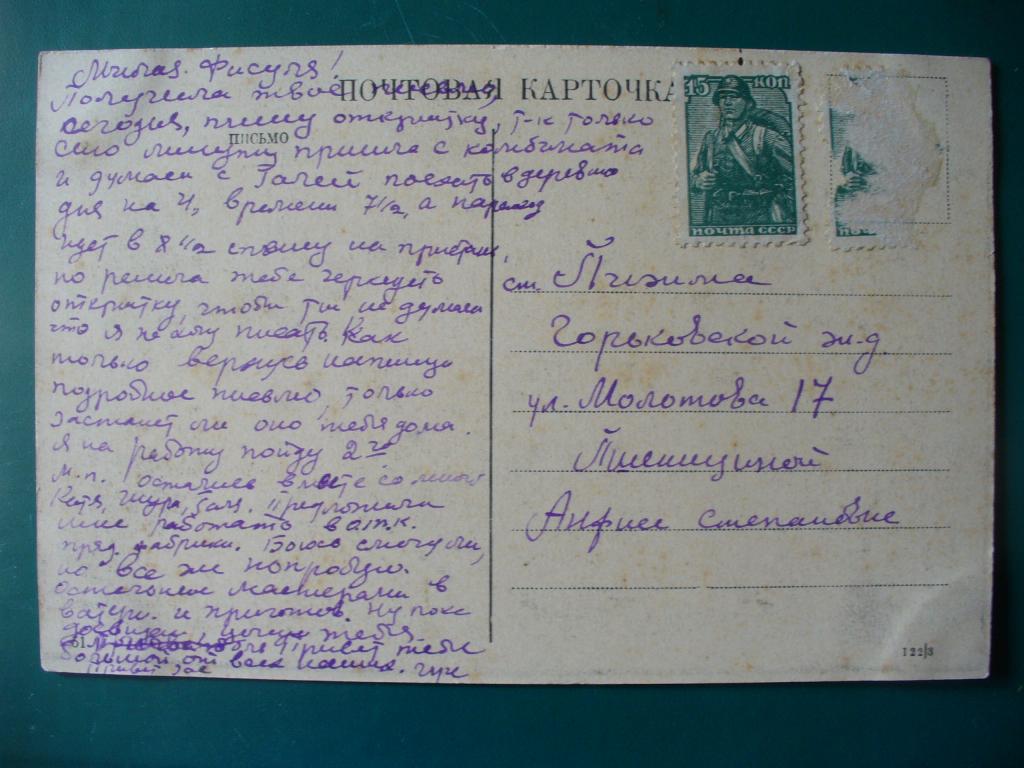 ПОЧТОВАЯ КАРТОЧКА
ПИСЬМО
Милая Фисуля!
Получила твоё письмо,
сегодня, пишу открытку, т-к только
сию минуту пришла с комбината
и думаем с Галей поехать в деревню
дня на 4, времени 7 1/2, а пароход
идет в 8 1/2 спешу на пристань,
но решила тебе черкнуть
открытку, чтобы ты не думала
что я не хочу писать. Как
только вернусь напишу
подробное письмо, только
застанет ли оно тебя дома.
Я на работу пойду 2 го
м.п. остались вместе со мной
Катя, Шура, Галя. Предложили
мне работать в отк.
пряд. фабрики. Боюсь смогу ли,
но все же попробую.
Остальные мастерами в
ватерн. и приготов. Ну пока
до свидан, целую тебя
Привет тебе
большой от всех наших.
Привет
15 КОП
ПОЧТА СССР
ст. Пижма
Горьковской ж.д.
ул. Молотова 17
Пшенициной
Анфисе Степановне
122/3